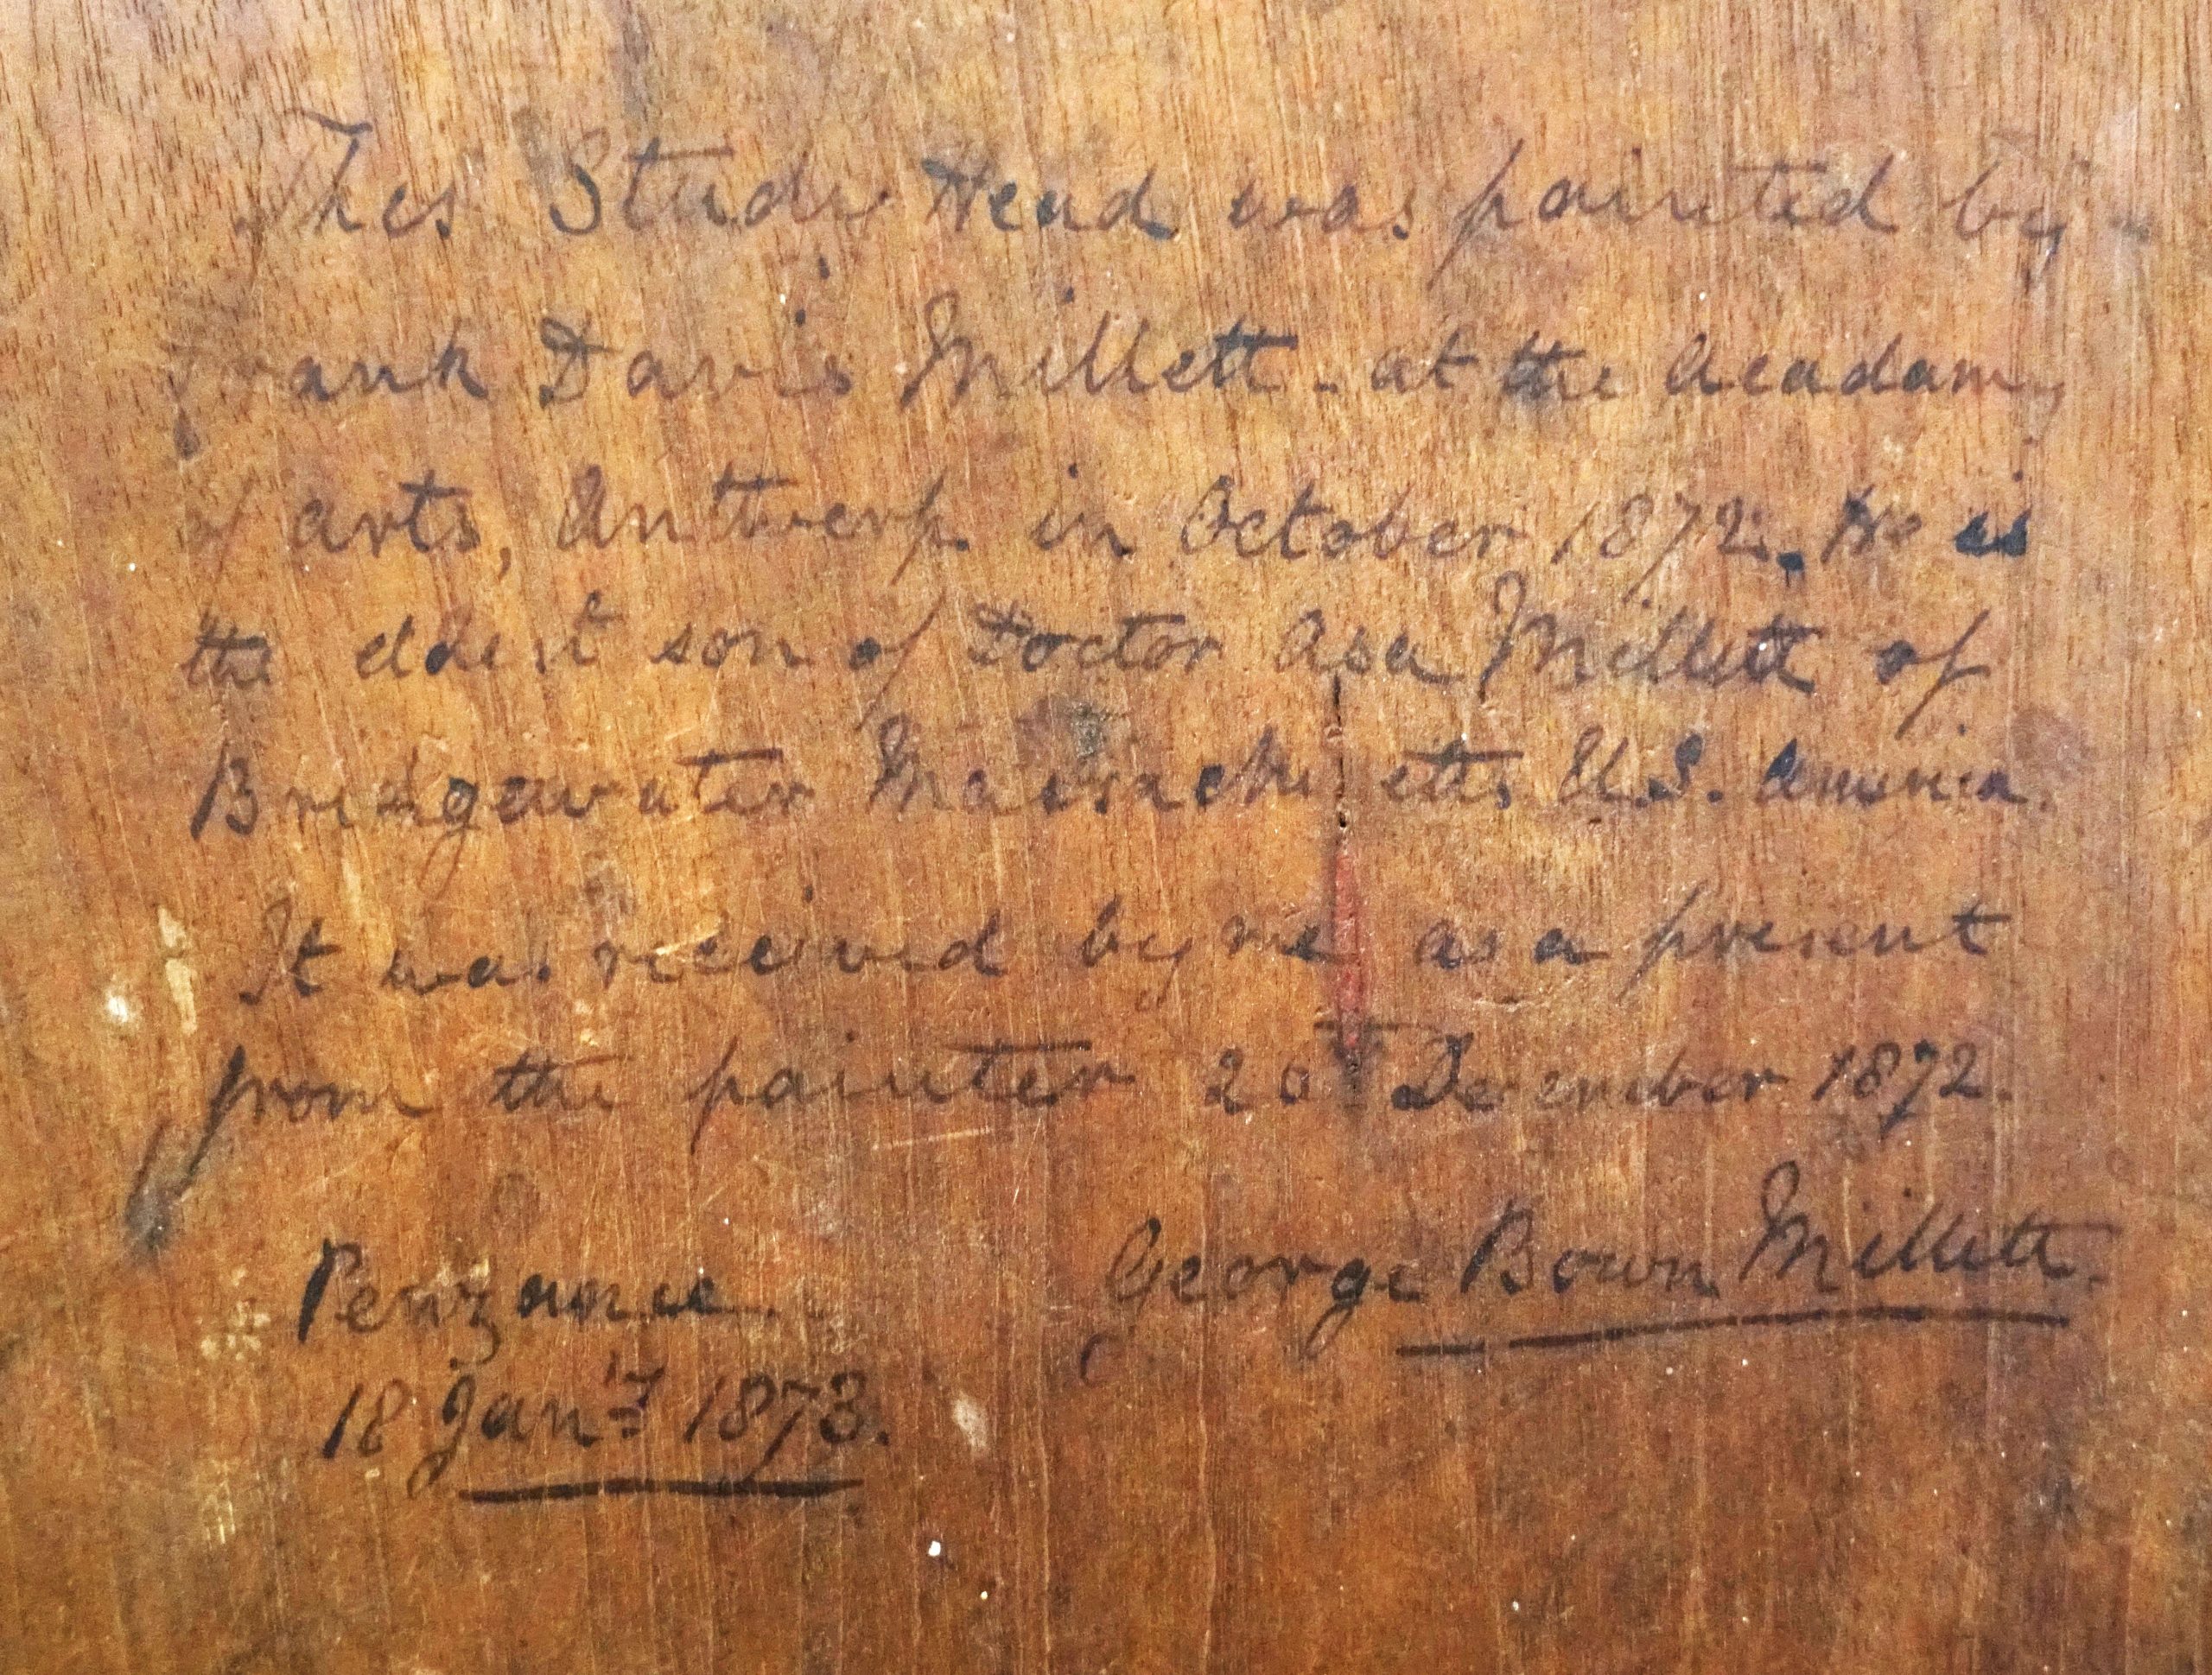 This Study Head was painted by -
Frank Davis Millett - at the Academy
of arts, Antwerp in October 1872. He is
the eldest son of Doctor Asa Millett of
Bridgewater Massachusetts U.S. America.
It was received by me as a present
from the painter 20th December 1872.
Penzance. George Bown Millett.
18 Jany 1873.